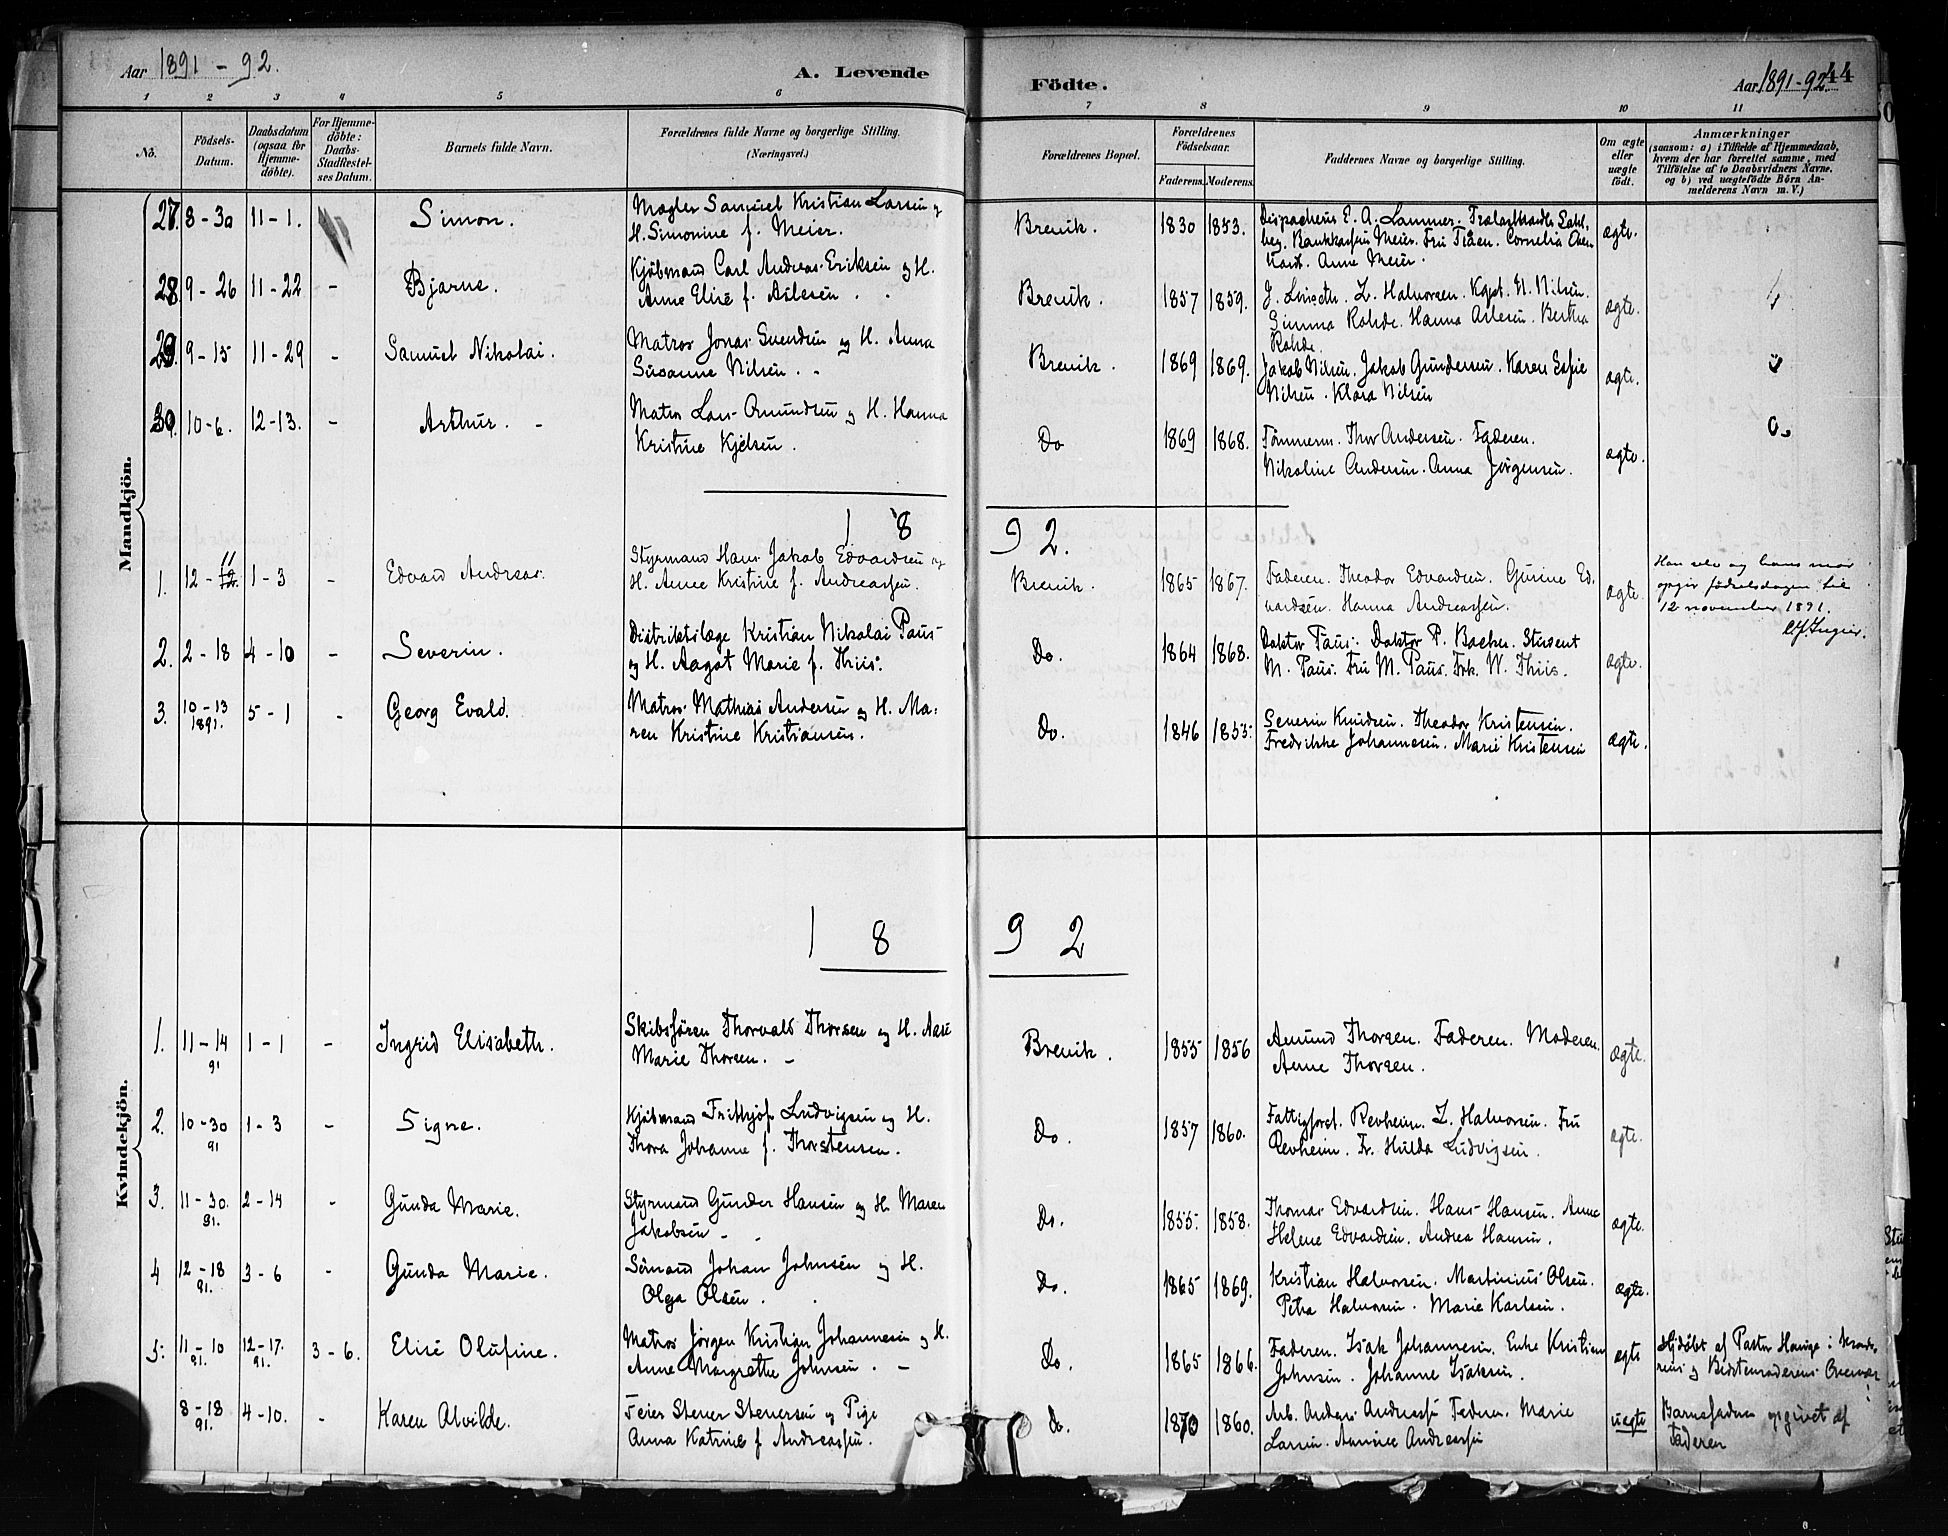 Aar 1891 - 92.
A. Levende
Födte.
Aar 1891-92.
44
1 2 3 4 5 6 7 8 9 10 11
No.
Födsels-Datum.
Daabsdatum (ogsaa for Hjemme-döbte).
For Hjemme-döbte: Daabs-Stadfæstel-ses Datum.
Barnets fulde Navn.
Forældrenes fulde Navne og borgerlige Stilling.
(Næringsvei.)
Forældrenes Bopæl.
Forældrenes Födselsaar.
Faderens. Moderens.
Faddernes Navne og borgerlige Stilling.
Om ægte eller uægte födt.
Anmærkninger
(saasom: a) i Tilfælde af Hjemmedaab, hvem der har forrettet samme, med Tilföielse af to Daabsvidners Navne. og b) ved uægtefödte Börn An-melderens Navn m. V.)
Mandkjön.
27. 8-30 11-1. Simon. Mægler Samuel Kristian Larsen og
H. Simonine f. Meier. Brevik. 1830 1853. Dispacheur E. A. Lammer.
Bankkasserer Meier. Fru Tidén. Cornelia
Anne Meier. ægte.
28. 9-26 11-22 - Bjarne. Kjöbmand Carl Andreas Eriksen og H.
Anne Elise f. Aslesen. Brevik. 1857 1859. Z. Halvorsen. Kapt. N. Nilsen.
Simma Rohde. Hanna Aslesen. Bertha
Rohde. ægte.
29. 9-15 11-29 - Samuel Nikolai. Matros Jonas Svendsen og H. Anna
Susanne Nilsen. Brevik. 1869 1869. Jakob Nilsen. Jakob Gundersen. Karen Esfie
Nilsen. Klara Nilsen ægte.
30. 10-6. 12-13. - Arthur. Matros Lars Amundsen og H. Hanna
Kristine Kjelsen. Do 1869 1868. Tömmerm. Thor Andersen. Faderen.
Nikoline Andersen. Anna Jörgensen. ægte.
18 92.
1. 12-11 1-3 - Edvard Andreas. Styrmand Hans Jakob Edvardsen og
H. Anne Kristine f. Andreassen. Brevik. 1865 1867. Faderen. Theodor Edvardsen. Gurine Ed-
vardsen. Hanna Andreassen. ægte.
Han selv og hans mor
opgir fødselsdagen til
12 november 1891.
2. 2-18 4-10 - Severin. Distriktslæge Kristian Nikolai Paus
og H. Aagot Marie f. Thiis. Do. 1864 1868. Doktor Paus. Doktor P. Backer. Student
M. Paus. Fru M. Paus. Frk. W. Thiis. ægte.
3. 10-13 1891. 5-1 - Georg Evald. Matros Mathias Andersen og H. Ma-
ren Kristine Kristiansen. Do. 1846 1855. Severin Knudsen. Theodor Kristensen.
Fredrikke Johannesen. Marie Kristensen ægte.
Kvindekjön.
18 92
1. 11-14 91 1-1 - Ingrid Elisabeth. Skibsfören Thorvald Thorsen og H. Aase
Marie Thorsen. Brevik. 1855 1856 Amund Thorsen. Faderen. Moderen.
Anne Thorsen. ægte.
2. 10-30 91 1-3 - Signe. Kjöbmand Frithjof Ludvigsen og H.
Thora Johanne f. Thorstensen. Do. 1857 1860. Fattigforst. Revheim. Z. Halvorsen. Fru
Revheim. Fr. Hulda Ludvigsen. ægte.
3. 11-30. 91. 2-14 - Gunda Marie. Styrmand Gunder Hansen og H. Maren
Jakobsen. Do. 1855. 1858. Thomas Edvardsen. Hans Hansen. Anne
Helene Edvardsen. Andrea Hansen. ægte.
4 12-18 91. 3-6 - Gunda Marie. Sömand Johan Johnsen og H.
Olga Olsen. Do. 1865 1869. Kristian Halvorsen. Martinius Olsen.
Petra Halvorsen. Marie Karlsen. ægte.
5. 11-10 91. 12-17. 91. 3-6. Elise Olufine. Matros Jörgen Kristian Johannesen og H.
Anne Margrethe Johnsen. Do. 1865 1866. Faderen. Isak Johannesen. Enke Kristiane
Johnsen. Johanne Isaksen. ægte Hjdöbt af Pastor Hauge i Mode-
rens og Bedstemoderens Overvær
8-18 91. 4-10. - Karen Alvilde. Feier Stener Stenersen og Pige
Anna Katrine f Andreassen. Do. 1870 1860. Arb. Anders Andreassen Faderen. Marie
Larsen. Andreassen uægte Barnefaderen opgivet af
Faderen